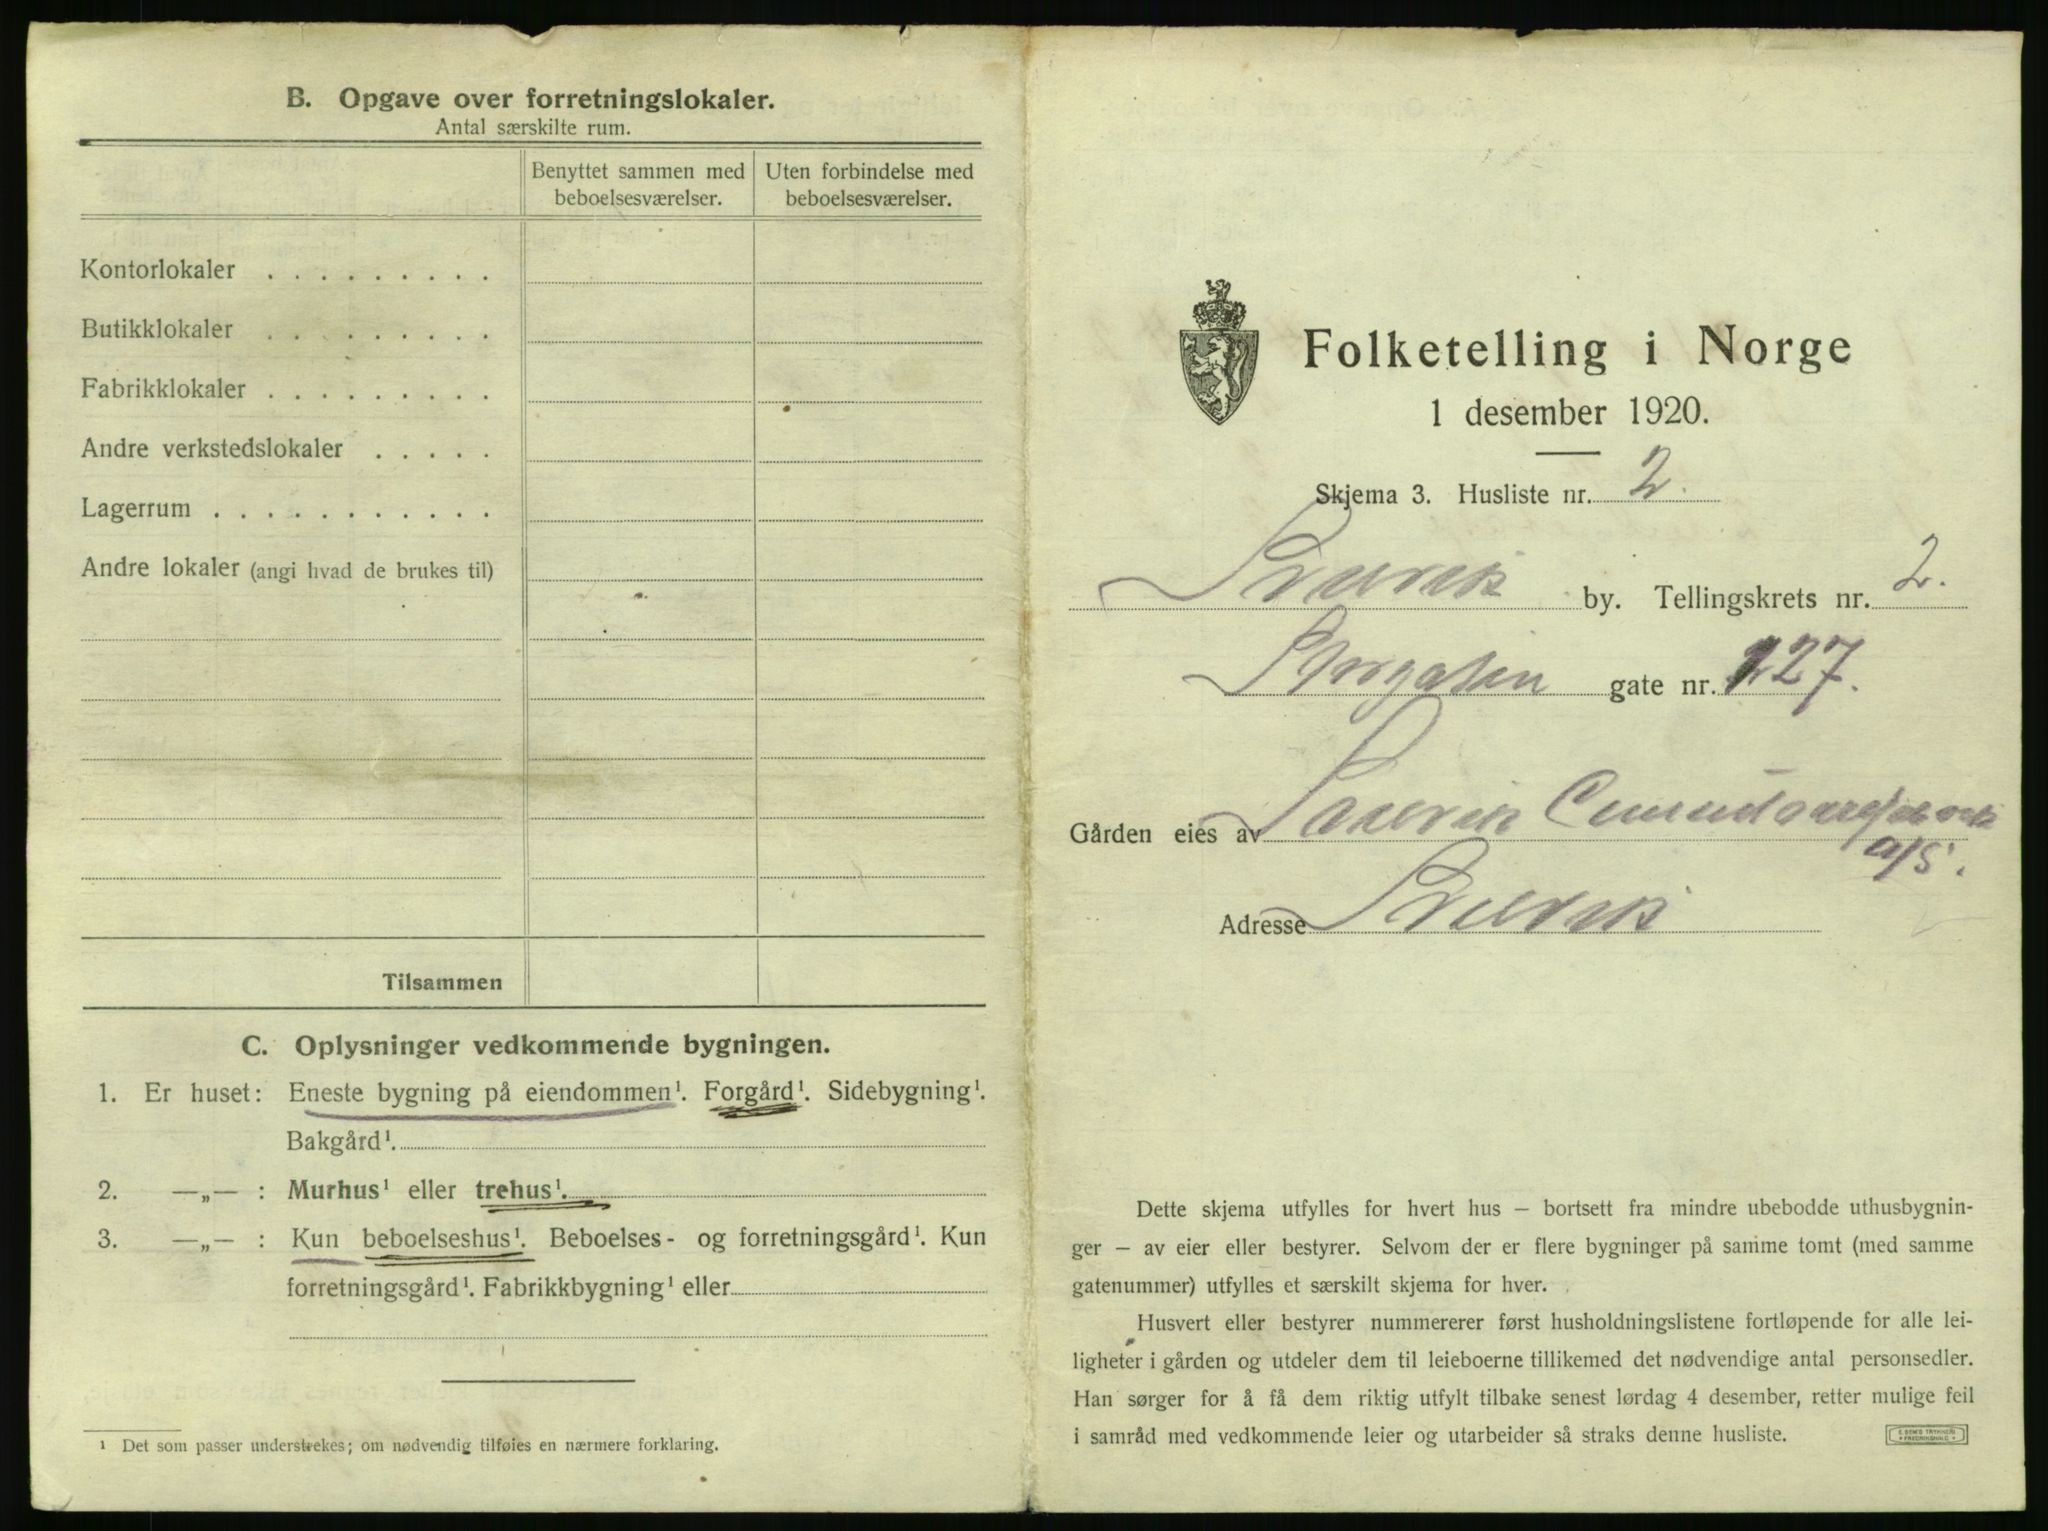 B. Opgave over forretningslokaler.
Antal særskilte rum.
Benyttet sammen med
beboelsesværelser.
Uten forbindelse med
beboelsesværelser.
Kontorlokaler . . . . . . . . .
Butikklokaler . . . . . . . . .
Fabrikklokaler . . . . . . . . .
Andre verkstedslokaler . . . . .
Lagerrum . . . . . . . . . . .
Andre lokaler (angi hvad de brukes til)
Tilsammen
C. Oplysninger vedkommende bygningen.
1. Er huset: Eneste bygning på eiendommen¹. Forgård¹. Sidebygning¹.
Bakgård¹.
2. —„— : Murhus¹ eller trehus¹.
3. —„— : Kun beboelseshus¹. Beboelses- og forretningsgård¹. Kun
forretningsgård¹. Fabrikkbygning¹ eller
¹ Det som passer understrekes; om nødvendig tilføies en nærmere forklaring.
Folketelling i Norge
1 desember 1920.
Skjema 3. Husliste nr. 2.
Svelvik by. Tellingskrets nr. 2.
Storgaten gate nr. 127.
Gården eies av Svelvik
A/S.
Adresse Svelvik
Dette skjema utfylles for hvert hus – bortsett fra mindre ubebodde uthusbygnin-
ger – av eier eller bestyrer. Selvom der er flere bygninger på samme tomt (med samme
gatenummer) utfylles et særskilt skjema for hver.
Husvert eller bestyrer nummererer først husholdningslistene fortløpende for alle lei-
ligheter i gården og utdeler dem til leieboerne tillikemed det nødvendige antal personsedler.
Han sørger for å få dem riktig utfylt tilbake senest lørdag 4 desember, retter mulige feil
i samråd med vedkommende leier og utarbeider så straks denne husliste.
E. SEM'S TRYKKERI
FREDRIKSHALD